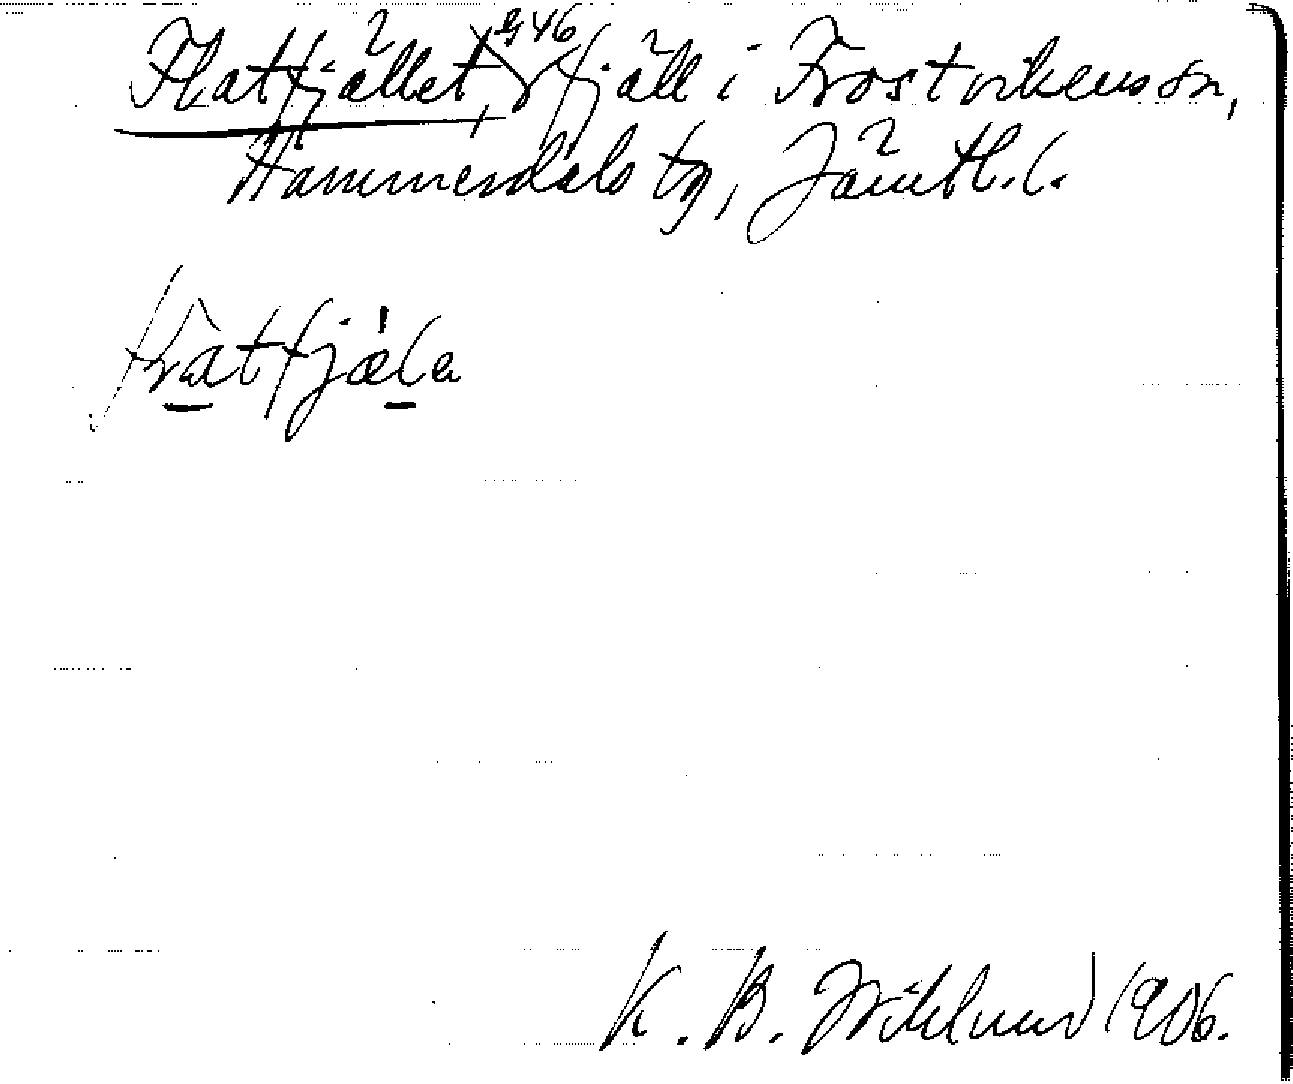 Flatfjället, G46 fjäll i Frostvikens sn,
Hammerdals tg, Jämtl. l.
K. B. Wiklund 1906.